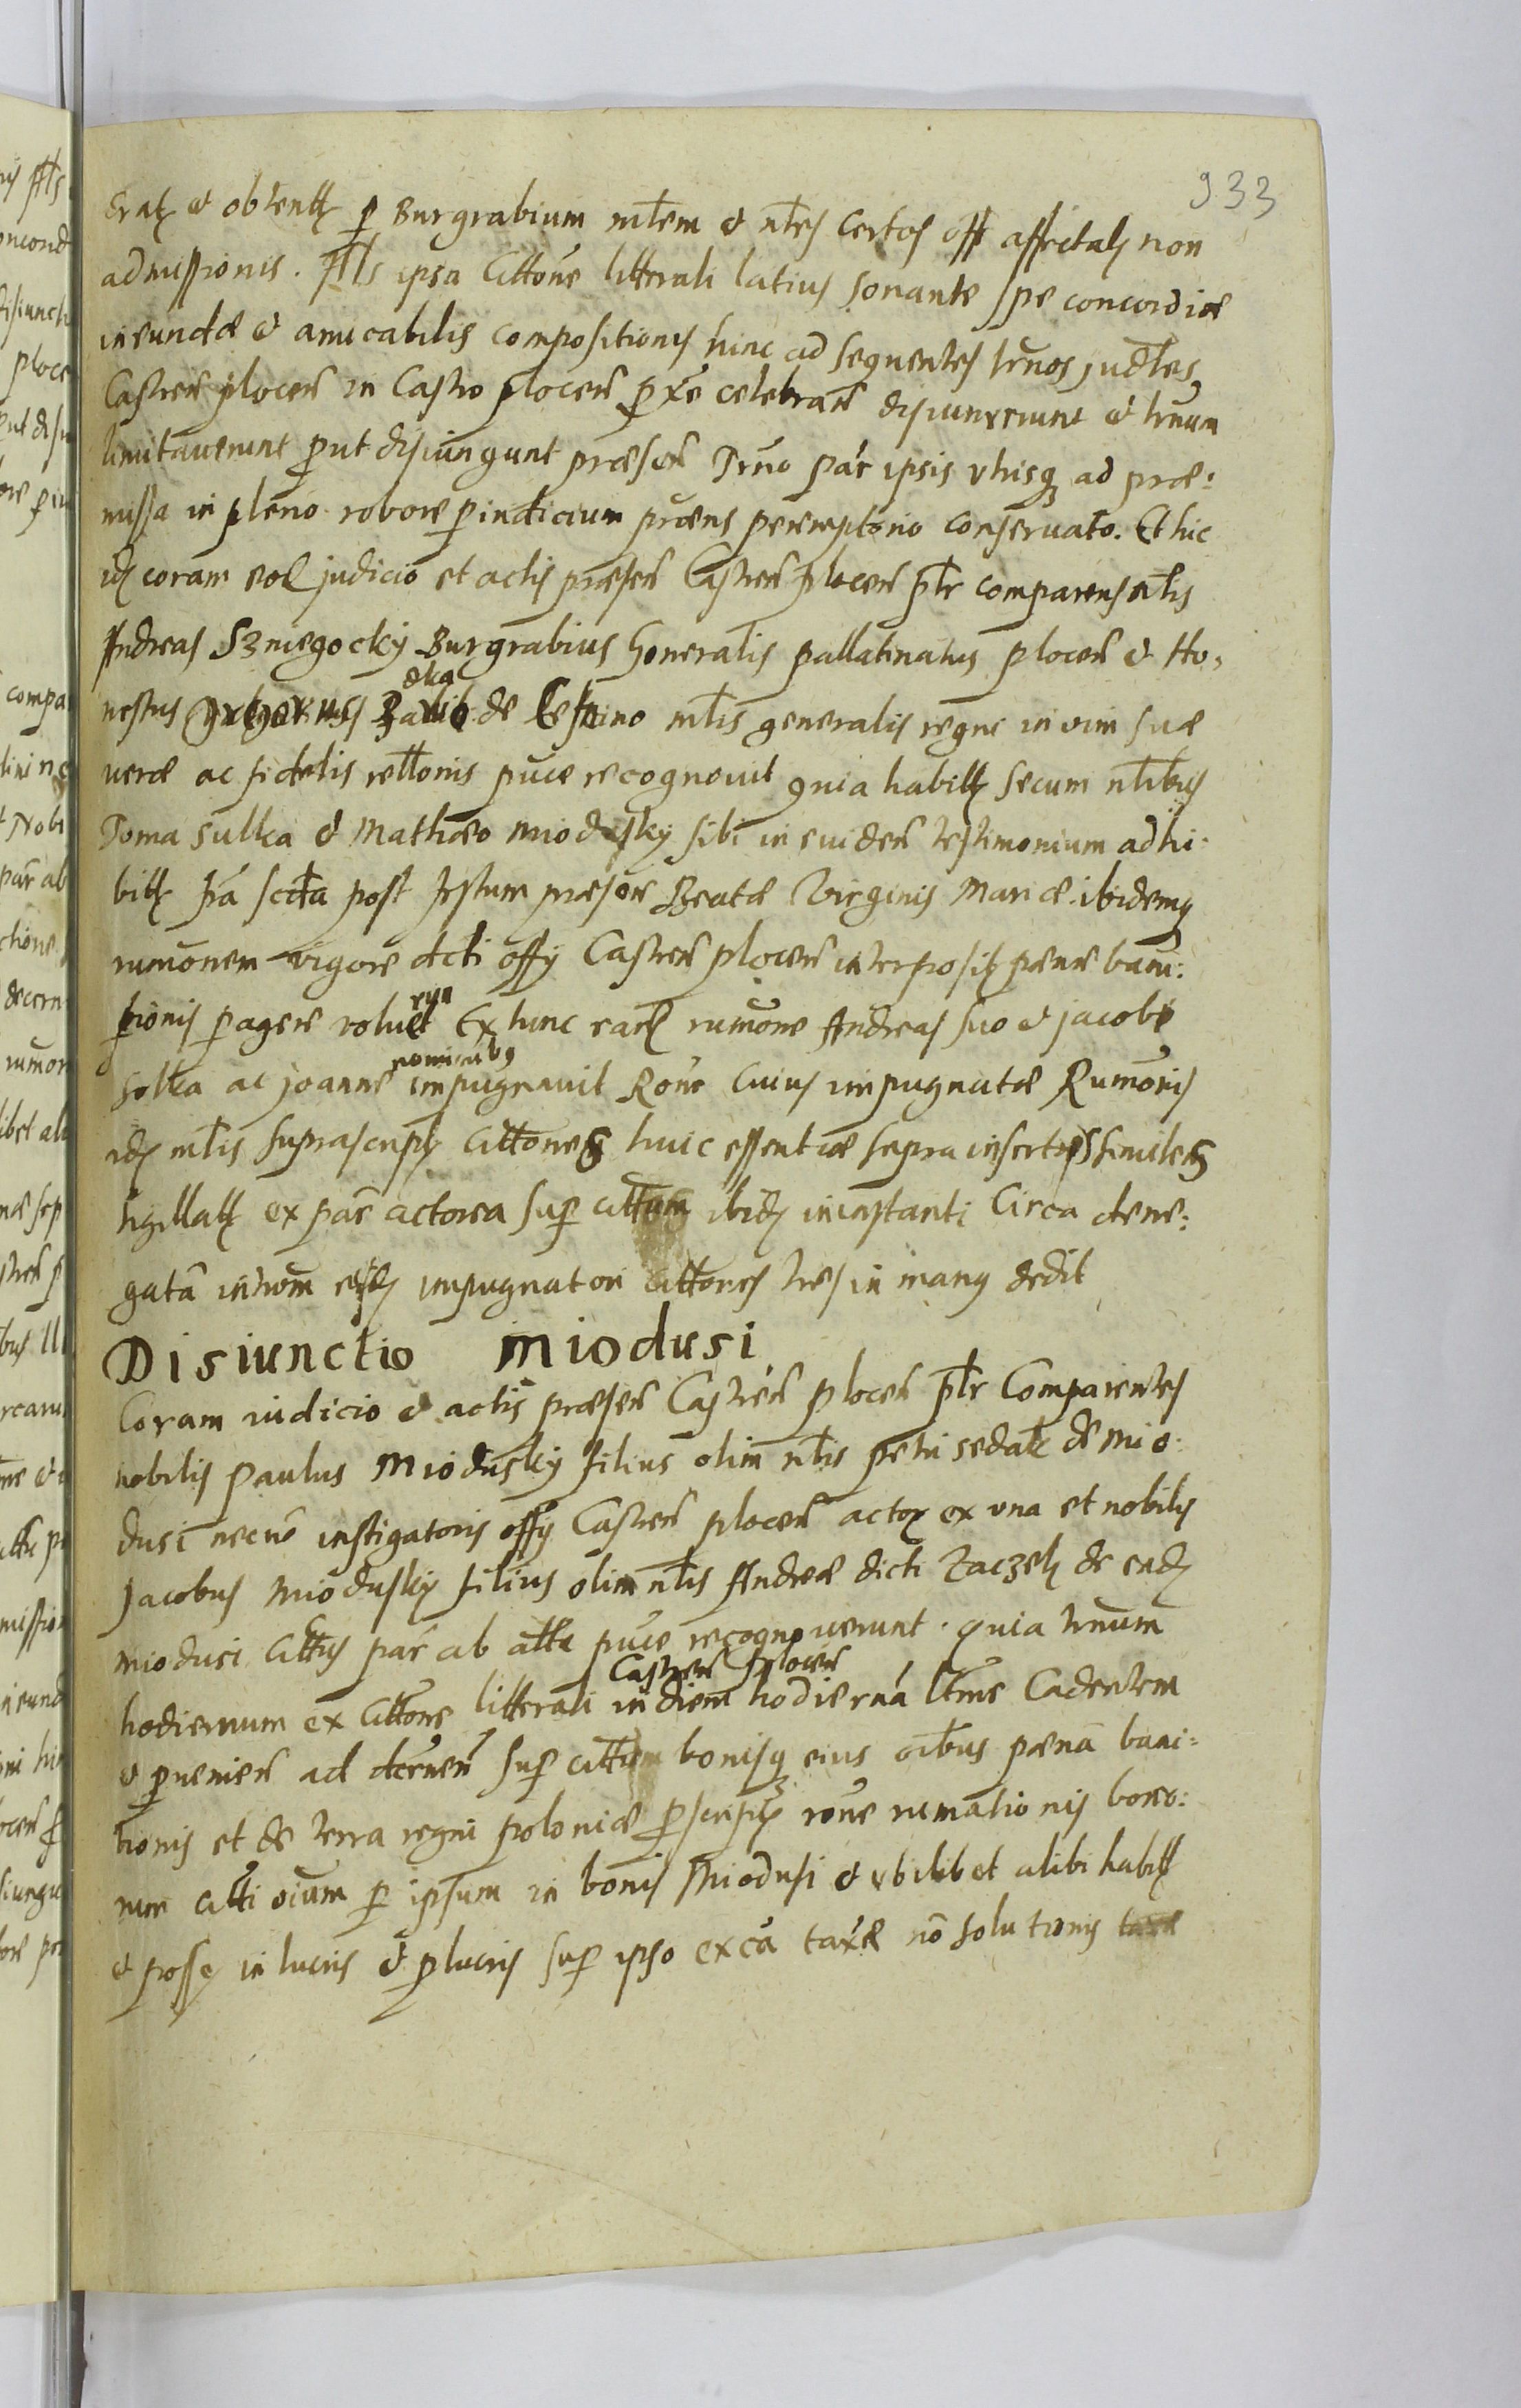 933
et obtent p Burgrabium mlem et nles certos off non
admissionis. ipsa Cittone litterali latius sonante spe concordiæ
ineundæ et amicabilis compositionis hinc ad sequentes trnos judles
Castren plocen in Castro plocen pxe celebran disiunxerunt et trnum
limitaverunt put disiungunt præsen Trno par ipsis vtrisq ad præ:
missa in pleno robore p indicium præns peremptorio conservato. Et hic
id coram eod judicio et actis præsen Castren plocen pltr comparens nlis
Andreas Szniegocky Burgrabius Generalis pallatinatus plocen et Ho,
nestus de mlis generalis regni in vim suæ
veræ ac fidelis rellonis puce recognovit quia habitt secum nlibus
Toma sulka et Mathæo miodusky sibi in eviden testimonium adhi:
bitt fra scda post festum Beatæ Virginis Mariæ ibidemq
rumonem vigore dcti offy Castren plocen interposit pœnæ bani:
tionis pagere voluerun Ex tunc rumone Andreas suo et jacobi
solka ac joanne nominibus impugnavit Rone cuius impugnatæ Rumonis
id mlis suprascript cittones huic essentiæ supra similes
sigillatt ex par actorea sup cittum ibid in instanti Circa dene:
gatâ introm impugnatori cittones tres in manq dedit
Disiunctio miodusi
Coram iudicio et actis præsen Castren plocen pltr Comparentes
nobilis paulus Miodusky filius olim nlis petri sedak de mio
dusi necnô instigatoris offy Castren plocen actor ex vna et nobilis
Jacobus miodusky filius olim nlis Andreæ dicti Zaczek de ead
miodusi Cittus par ab atta puce recognoverunt. quia trnum
hodiernum ex Cittone litterali in diem hodierna Castren plocen ltme Cadentem
et pvenien ad dcrnen sup cittum bonisq eius oibus pœnâ bani:
tionis et de terra regni poloniæ pscript rone rumationis boreo:
rum citti oium p ipsum in bonis Miodusi et vbilibet alibi habitt
et poss in lucris et plucris sup ipso ex cá taxæ nô solutionis taxæ